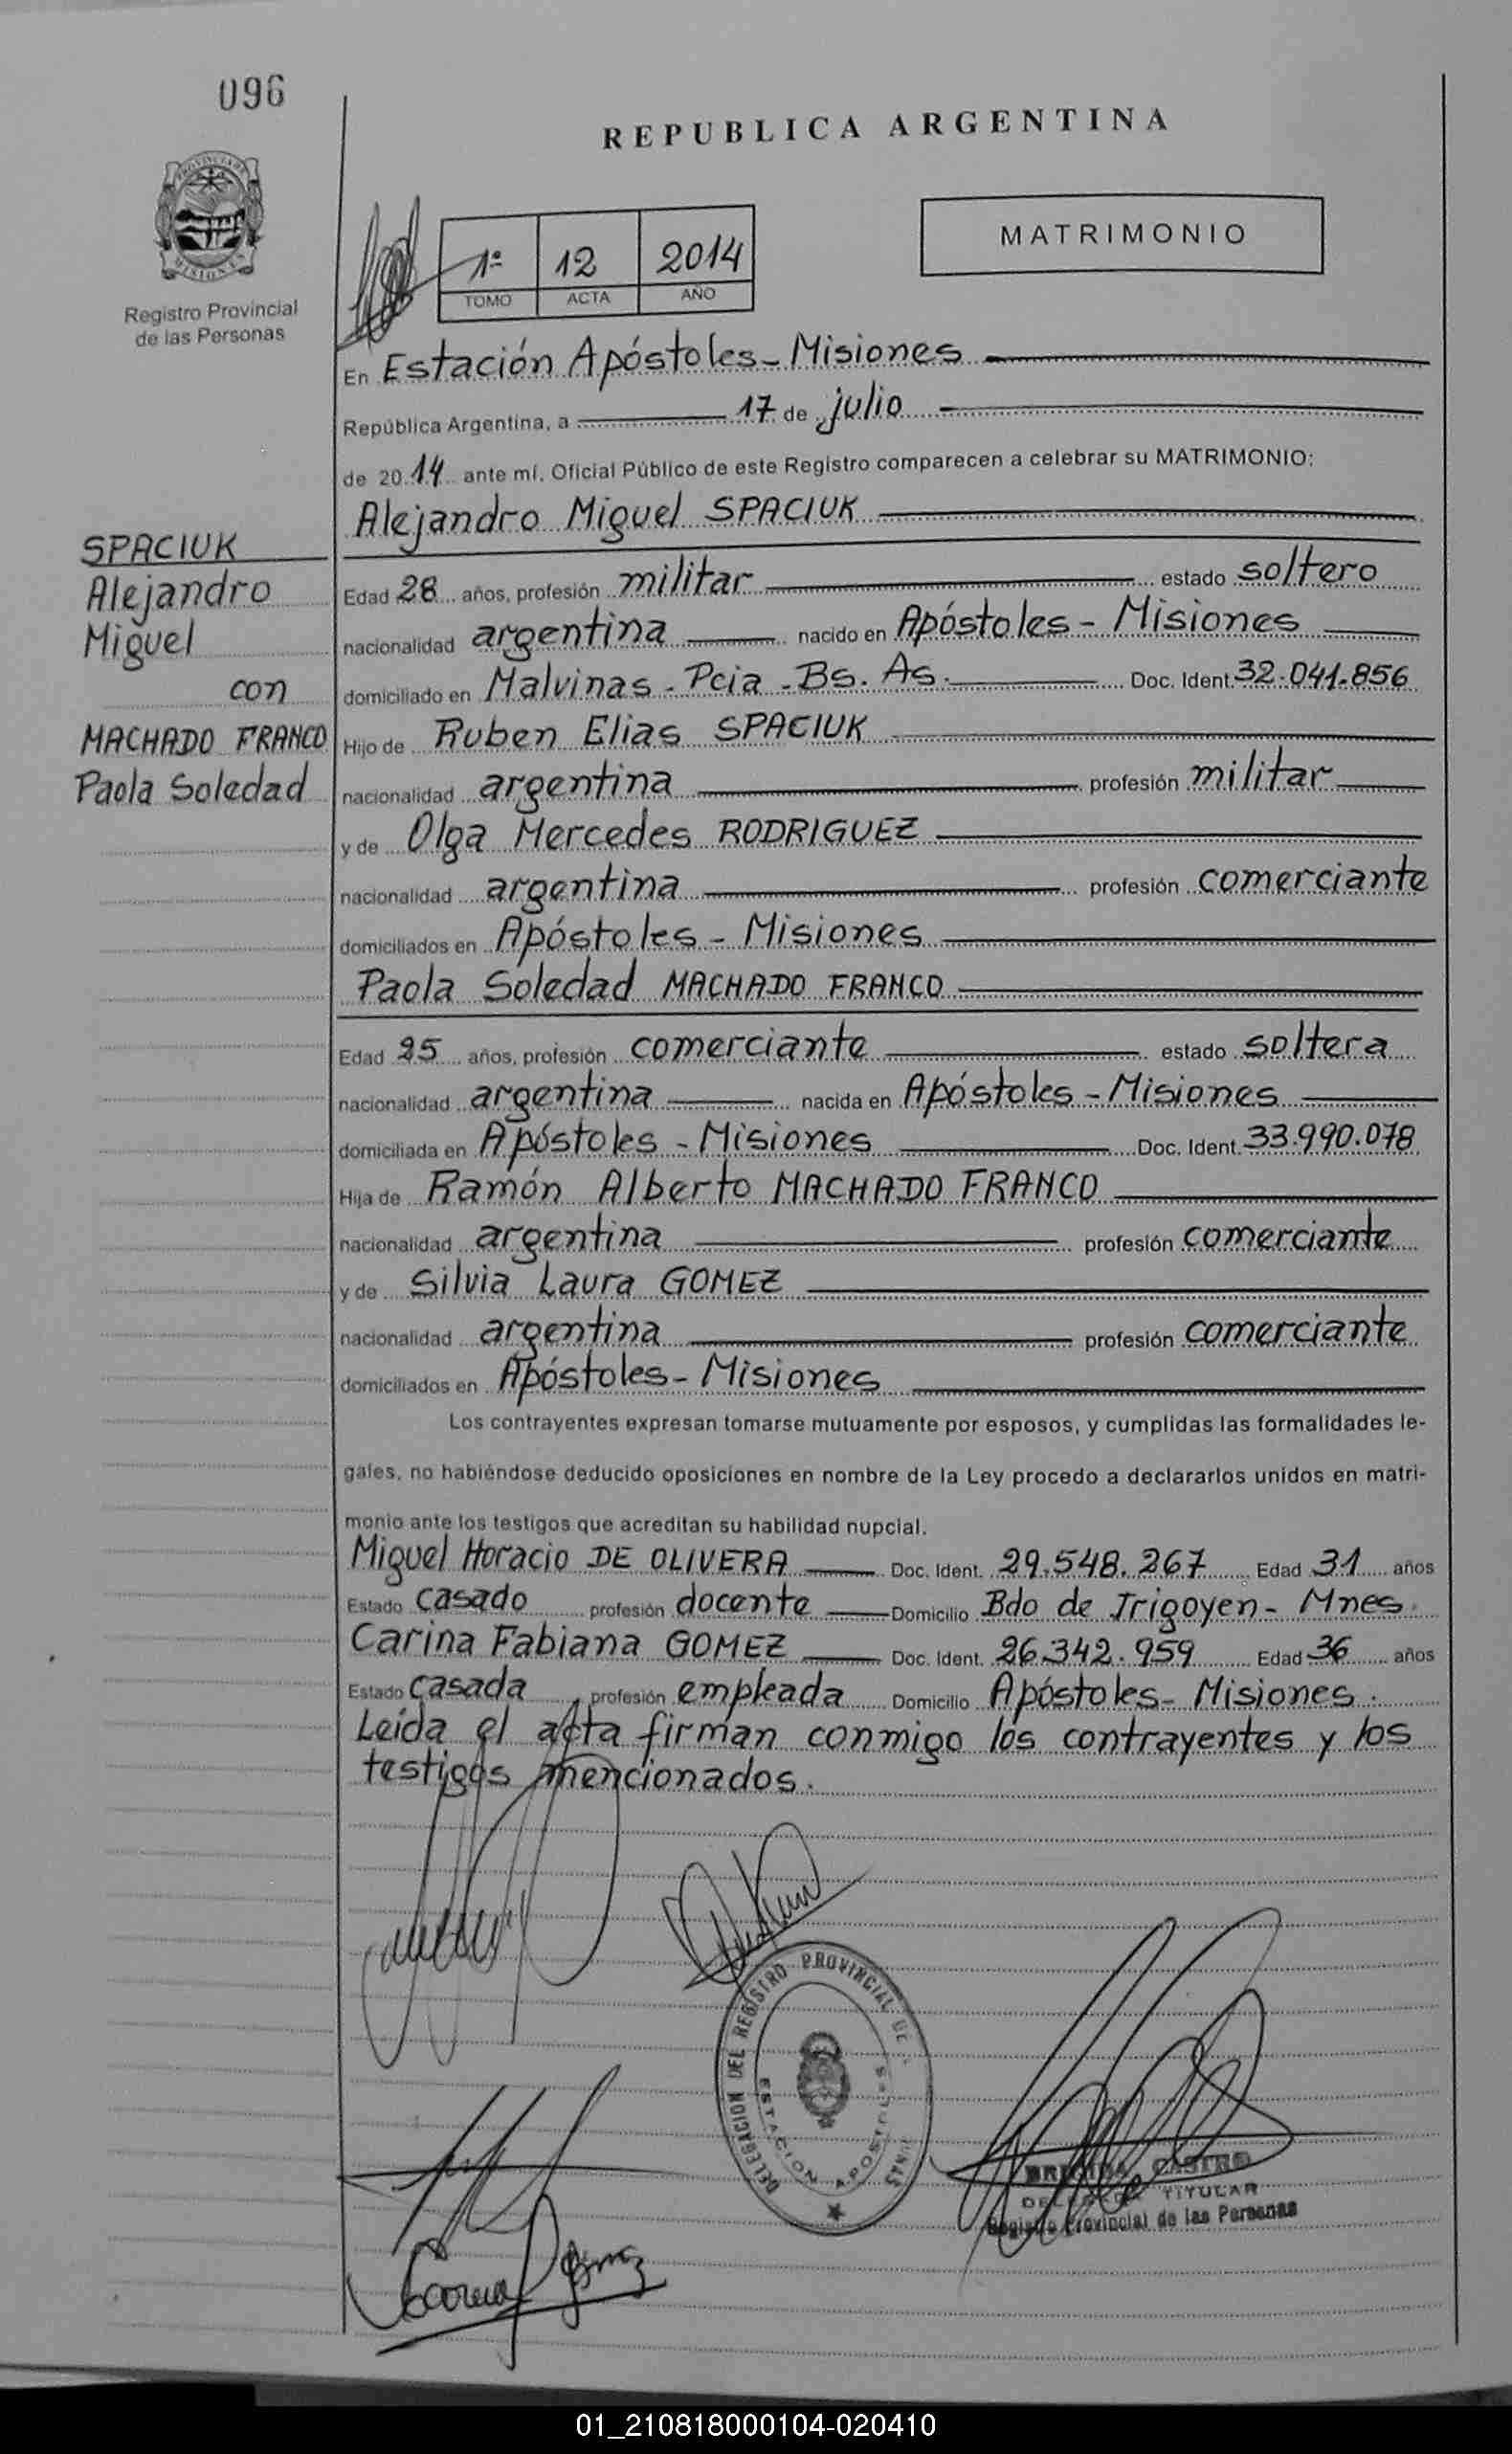 096
REPUBLICA ARGENTINA
PROVINCIA DE
MISIONES
Registro Provincial
de las Personas
1º 12 2014
TOMO ACTA AÑO
MATRIMONIO
En Estación Apóstoles - Misiones
República Argentina, a 17 de julio
de 2014 ante mí, Oficial Público de este Registro comparecen a celebrar su MATRIMONIO:
Alejandro Miguel SPACIUK
SPACIUK
Alejandro
Miguel
con
MACHADO FRANCO
Paola Soledad
Edad 28 años, profesión militar estado soltero
nacionalidad argentina nacido en Apóstoles - Misiones
domiciliado en Malvinas - Pcia - Bs. As. Doc. Ident. 32.041.856
Hijo de Ruben Elias SPACIUK
nacionalidad argentina profesión militar
y de Olga Mercedes RODRIGUEZ
nacionalidad argentina profesión comerciante
domiciliados en Apóstoles - Misiones
Paola Soledad MACHADO FRANCO
Edad 25 años, profesión comerciante estado soltera
nacionalidad argentina nacida en Apóstoles - Misiones
domiciliada en Apóstoles - Misiones Doc. Ident. 33.990.078
Hija de Ramón Alberto MACHADO FRANCO
nacionalidad argentina profesión comerciante
y de Silvia Laura GOMEZ
nacionalidad argentina profesión comerciante
domiciliados en Apóstoles - Misiones
Los contrayentes expresan tomarse mutuamente por esposos, y cumplidas las formalidades le-
gales, no habiéndose deducido oposiciones en nombre de la Ley procedo a declararlos unidos en matri-
monio ante los testigos que acreditan su habilidad nupcial.
Miguel Horacio DE OLIVERA Doc. Ident. 29.548.267 Edad 31 años
Estado casado profesión docente Domicilio Bdo de Irigoyen - Mnes.
Carina Fabiana GOMEZ Doc. Ident. 26.342.959 Edad 36 años
Estado casada, profesión empleada Domicilio Apóstoles - Misiones.
Leída el acta firman conmigo los contrayentes y los
testigos mencionados.
DELEGACION DEL REGISTRO PROVINCIAL DE
ESTACION APOSTOLES
CASTRO
TITULAR
Registro Provincial de las Personas
01_210818000104-020410